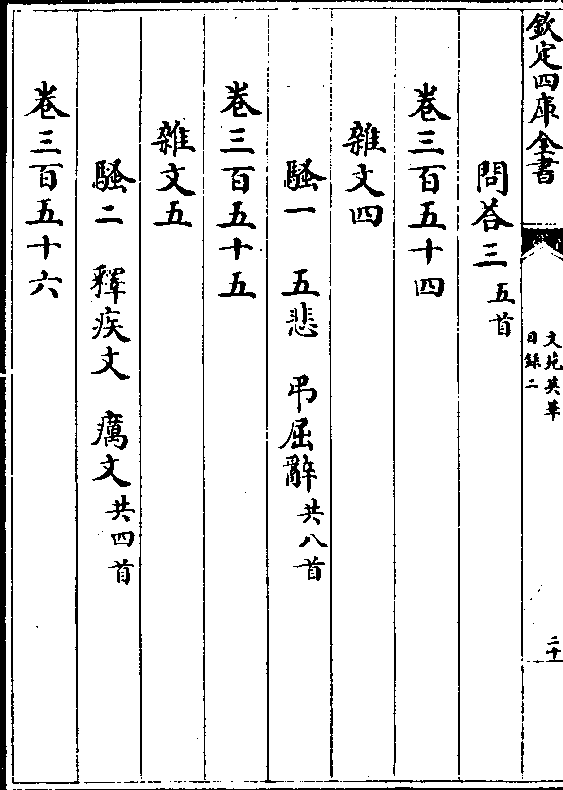 欽定四庫全書
文苑英華
目錄二
二十
問答三 五首
卷三百五十四
雜文四
騷一 五悲 弔屈辭 共八首
卷三百五十五
雜文五
騷二 釋疾文 癘文 共四首
卷三百五十六